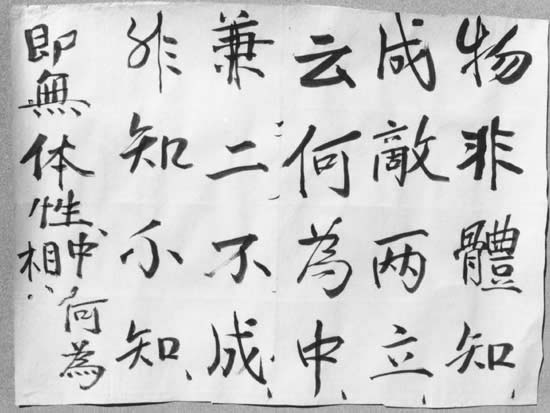 物非體知
成敵两立、
云何為中、
兼二不成、
非知不知、
即無体性中何為相